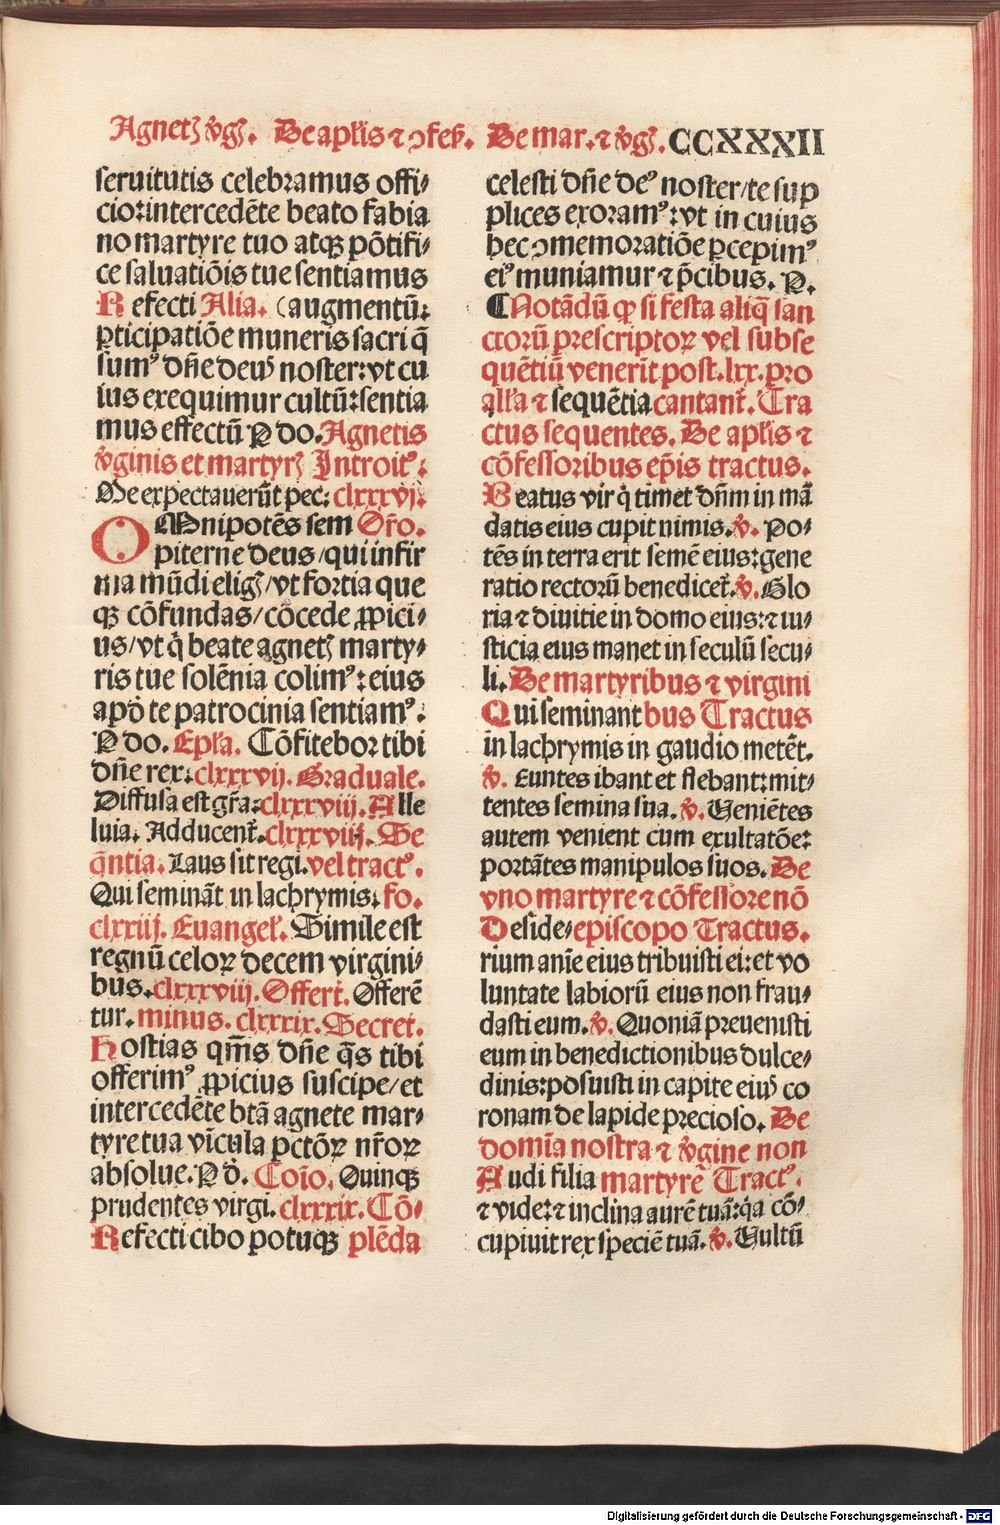 Agnetꝫ v̄gꝫ. De apl̄is ⁊ ↄfes̄. De mar. ⁊ v̄gꝫ. CCXXXII
seruitutis celebramus offi⸗
cio: intercedēte beato fabia
no martyre tuo atqꝫ pōtifi⸗
ce saluatiōis tue sentiamus
Refecti Alia. (augmentū:
ꝑticipatiōe muneris sacri q̄
sumꝰ dn̄e deus noster: vt cu
ius exequimur cultū: sentia
mus effectū P do. Agnetis
v̄ginis et martyrꝫ Introitꝰ:
Me expectauerūt pec: clxxxvj.
OMnipotēs sem Or̄o.
piterne deus/qui infir
ma mūdi eligꝫ/vt fortia que
qꝫ cōfundas/cōcede ꝓpici⸗
us/vt q̇ beate agnetꝫ marty⸗
ris tue solēnia colimꝰ: eius
apō te patrocinia sentiamꝰ.
P do. Ep̄la. Cōfitebor tibi
dn̄e rex: clxxxvij. Graduale.
Diffusa est gr̄a: clxxxviij. Alle
luia. Adducent̄. clxxxviij. Se
q̄ntia. Laus sit regi. vel tractꝰ.
Qui semināt in lachrymis: fo.
clxxiij. Euangel̄. Simile est
regnū celoꝝ decem virgini⸗
bus. clxxxviij. Offert̄. Offerē
tur. minus. clxxxix. Secret̄.
Hostias qm̄s dn̄e q̄s tibi
offerimꝰ ꝓpicius suscipe/et
intercedēte btā agnete mar⸗
tyre tua vīcula pctōꝝ nr̄oꝝ
absolue. P d̄. Coīo. Quinqꝫ
prudentes virgi. clxxxix. Cō⸗
Refecti cibo potuqꝫ plēda
celesti dn̄e deꝰ noster/te sup
plices exoramꝰ: vt in cuius
hec ↄmemoratiōe ꝑcepimꝰ
eiꝰ muniamur ⁊ p̄cibus. P.
¶ Notādū ꝙ si festa aliq̄ san
ctorū prescriptoꝝ vel subse
quētiū venerit post. lxx. pro
all̄a ⁊ sequētia cantant̄. Tra
ctus sequentes. De apl̄is ⁊
cōfessoribus ep̄is tractus.
Beatus vir q̇ timet dn̄m in mā
datis eius cupit nimis. v̄. Po⸗
tēs in terra erit semē eius: gene
ratio rectorū benedicet̄. v̄. Glo
ria ⁊ diuitie in domo eius: ⁊ iu⸗
sticia eius manet in seculū secu⸗
li. De martyribus ⁊ virgini
Qui seminant bus Tractus
in lachrymis in gaudio metēt.
v̄. Euntes ibant et flebant: mit⸗
tentes semina sua. v̄. Veniētes
autem venient cum exultatōe:
portātes manipulos suos. De
vno martyre ⁊ cōfessore nō
Deside⸗ episcopo Tractus.
rium anīe eius tribuisti ei: et vo
luntate labiorū eius non frau⸗
dasti eum. v̄. Quoniā preuenisti
eum in benedictionibus dulce⸗
dinis: posuisti in capite eius co
ronam de lapide precioso. De
domīa nostra ⁊ v̄gine non
Audi filia martyrē Tractꝰ.
⁊ vide: ⁊ inclina aurē tuā: q̇a cō⸗
cupiuit rex speciē tuā. v̄. Vultū
Digitalisierung gefördert durch die Deutsche Forschungsgemeinschaft - DFG